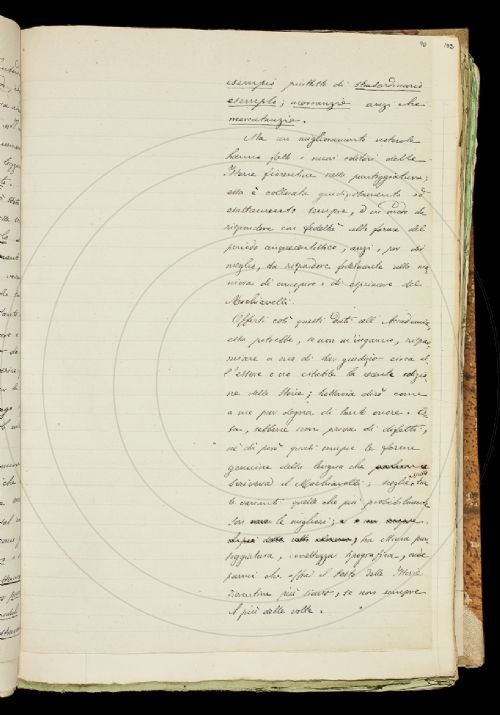 90 103
esempio piuttosto di straordinario
esemplo; mercanzie anzi che
mercatanzie.
Ma un miglioramento notevole
hanno fatto i nuovi editori delle
Storie fiorentine nella punteggiatura;
essa è collocata giudiziosamente ed
esattamente sempre, e in modo da
rispondere con fedeltà alla forma del
periodo cinquecentistico, anzi, per dir
meglio, da rispondere fedelmente alla ma
niera di concepire e di esprimere del
Machiavelli.
Offerti così questi Dati all'Accademia,
essa potrebbe, se non m'inganno, rispar
miare a me di dar giudizio circa al
l'essere o no citabile la recente edizio
ne delle Storie; tuttavia dirò come
a me par degna di tanto onore. Es
sa, sebbene non priva di difetti,
nè dia però quasi sempre le forme
genuine della lingua che
scriveva il Machiavelli; sceglie tra
le varianti quelle che più probabilmente
son le migliori;
ha Miglior pun
teggiatura, correttezza tipografica, onde
parmi che offra il testo delle Storie
fiorentine più sicuro, se non sempre
il più delle volte.